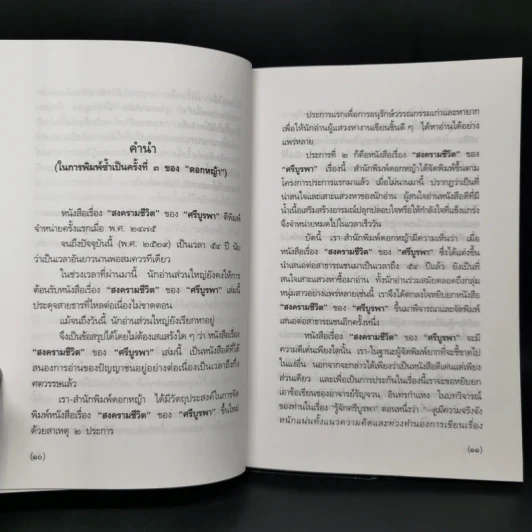 คำนำ
(ในการพิมพ์ซ้ำเป็นครั้งที่ ๓ ของ "ดอกหญ้า")
หนังสือเรื่อง "สงครามชีวิต" ของ "ศรีบูรพา" ตีพิมพ์
จำหน่ายครั้งแรกเมื่อ พ.ศ. ๒๔๗๕
จนถึงปัจจุบันนี้ (พ.ศ. ๒๕๒๙) เป็นเวลา ๕๔ ปี นับ
ว่าเป็นเวลาอันยาวนานพอสมควรทีเดียว
ในช่วงเวลาที่ผ่านมานี้ นักอ่านส่วนใหญ่ยังคงให้การ
ต้อนรับหนังสือเรื่อง "สงครามชีวิต" ของ "ศรีบูรพา" เล่มนี้
ประดุจสายธารที่ไหลต่อเนื่องไม่ขาดตอน
แม้จนถึงวันนี้ นักอ่านส่วนใหญ่ยังเรียกหาอยู่
จึงเป็นข้อสรุปได้โดยไม่ต้องสงสัยใด ๆ ว่า หนังสือเรื่อง
"สงครามชีวิต" ของ "ศรีบูรพา" เล่มนี้ เป็นหนังสือดีที่ได้
สนองการอ่านของปัญญาชนอยู่อย่างต่อเนื่องเป็นเวลาถึงกึ่ง
ศตวรรษแล้ว
เรา-สำนักพิมพ์ดอกหญ้า ได้มีวัตถุประสงค์ในการจัด
พิมพ์หนังสือเรื่อง "สงครามชีวิต" ของ "ศรีบูรพา" ขึ้นใหม่
ด้วยสาเหตุ ๒ ประการ
(๑๐)
ประการแรกเพื่อการอนุรักษ์วรรณกรรมเก่าและหายาก
เพื่อให้นักอ่านผู้แสวงหางานเขียนชิ้นดี ๆ ได้หาอ่านได้อย่าง
แพร่หลาย
ประการที่ ๒ ก็คือหนังสือเรื่อง "สงครามชีวิต" ของ
"ศรีบูรพา" เรื่องนี้ สำนักพิมพ์ดอกหญ้าได้จัดพิมพ์ขึ้นตาม
โครงการประการแรกมาแล้ว เมื่อไม่นานมานี้ ปรากฏว่าเป็นที่
น่าสนใจและเสาะแสวงหาของนักอ่าน ผู้สนใจอ่านหนังสือดีที่มี
น้ำเนื้อเสริมสร้างอารมณ์ปลุกปลอบใจหรือให้กำลังใจที่แข็งแกร่ง
จึงจำหน่ายหมดไปในเวลาเร็ววัน
บัดนี้ เรา-สำนักพิมพ์ดอกหญ้ามีความเห็นว่า เมื่อ
หนังสือเรื่อง "สงครามชีวิต" ของ "ศรีบูรพา" ซึ่งได้แต่งขึ้น
นำเสนอต่อสาธารณชนมาเป็นเวลาถึง ๕๔ ปีแล้ว ยังเป็นที่
สนใจเสาะแสวงหาซื้อมาอ่าน ทั้งนักอ่านร่วมสมัยตลอดถึงกลุ่ม
หนุ่มสาวอย่างแพร่หลายเช่นนี้ เราจึงได้ตกลงใจหยิบยกหนังสือ
เรื่อง "สงครามชีวิต" ของ "ศรีบูรพา" ขึ้นมาพิจารณาและจัดพิมพ์
เสนอต่อสาธารณชนอีกครั้งหนึ่ง
หนังสือเรื่อง "สงครามชีวิต" ของ "ศรีบูรพา" จะมี
ความดีเด่นเพียงใดนั้น เรา-ในฐานะผู้จัดพิมพ์ยากที่จะชี้ขาดไป
ในแง่อื่น นอกจากจะกล่าวได้เพียงว่าเป็นหนังสือดีเด่นแต่เพียง
ส่วนเดียว และเพื่อเป็นการประกันในเรื่องนี้เราจะขอหยิบยก
เอาข้อเขียนของอาจารย์รัญจวน อินทรกำแหง ในบทวิจารณ์
ของท่านในเรื่อง "รู้จักศรีบูรพา" ตอนหนึ่งว่า "--ดูมีความจริงจัง
หนักแน่นทั้งแนวความคิดและท่วงทำนองการเขียนเรื่อง
(๑๑)